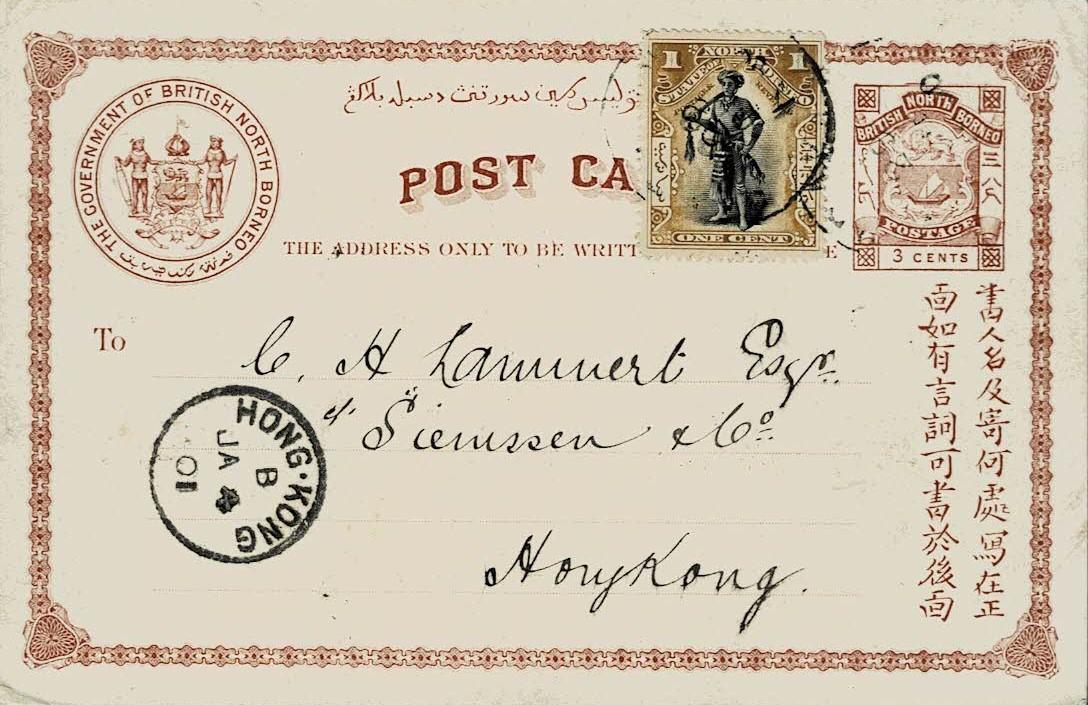 THE GOVERNMENT OF BRITISH NORTH BORNEO
POST CA
THE ADDRESS ONLY TO BE WRITT E
1 NORTH 1
STATE OF BORNEO
ONE CENT
BRITISH NORTH BORNEO
三八
POSTAGE
3 CENTS
To
C. H Lammert Esqr.
Siemssen & Co.
HongKong.
HONG·KONG
B
JA 4
01
書人名及寄何處寫在正
面如有言詞可書於後面